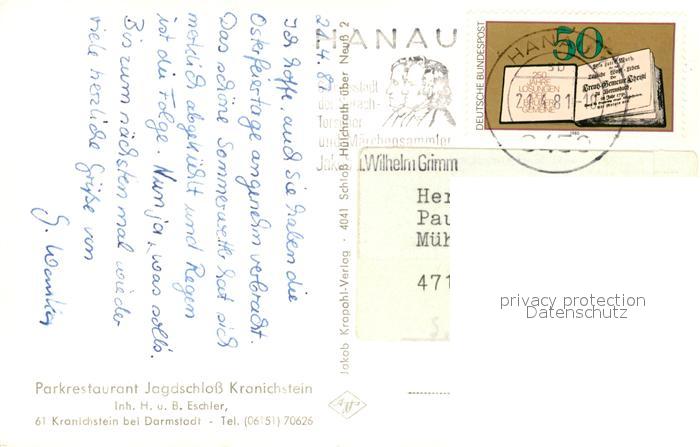 21.4.81
Ich hoffe, auch Sie haben die
Osterfeiertage angenehm verbracht.
Das schöne Sommerwetter hat sich
merklich abgekühlt und Regen
ist die Folge. Nun ja, was solls.
Bis zum nächsten mal wieder
viele herzliche Grüße von
G.
Parkrestaurant Jagdschloß Kranichstein
Inh. H. u. B. Eschler,
61 Kranichstein bei Darmstadt - Tel. (06151) 70626
Jakob Krapohl-Verlag · 4041 Schloß Hülchrath über Neuß 2
HANAU
und Märchensammler
Wilhelm Grimm
HANAU
21.4.81
DEUTSCHE BUNDESPOST
50
250
JAHRE
LOSUNGEN
GEMEINE
1980
Her
Pau
Müh
471
privacy protection
Datenschutz